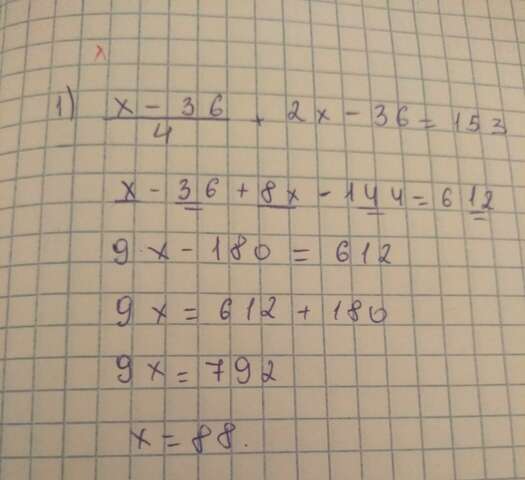 x
1) x - 36 / 4 + 2x - 36 = 153
x - 36 + 8x - 144 = 612
9x - 180 = 612
9x = 612 + 180
9x = 792
x = 88.